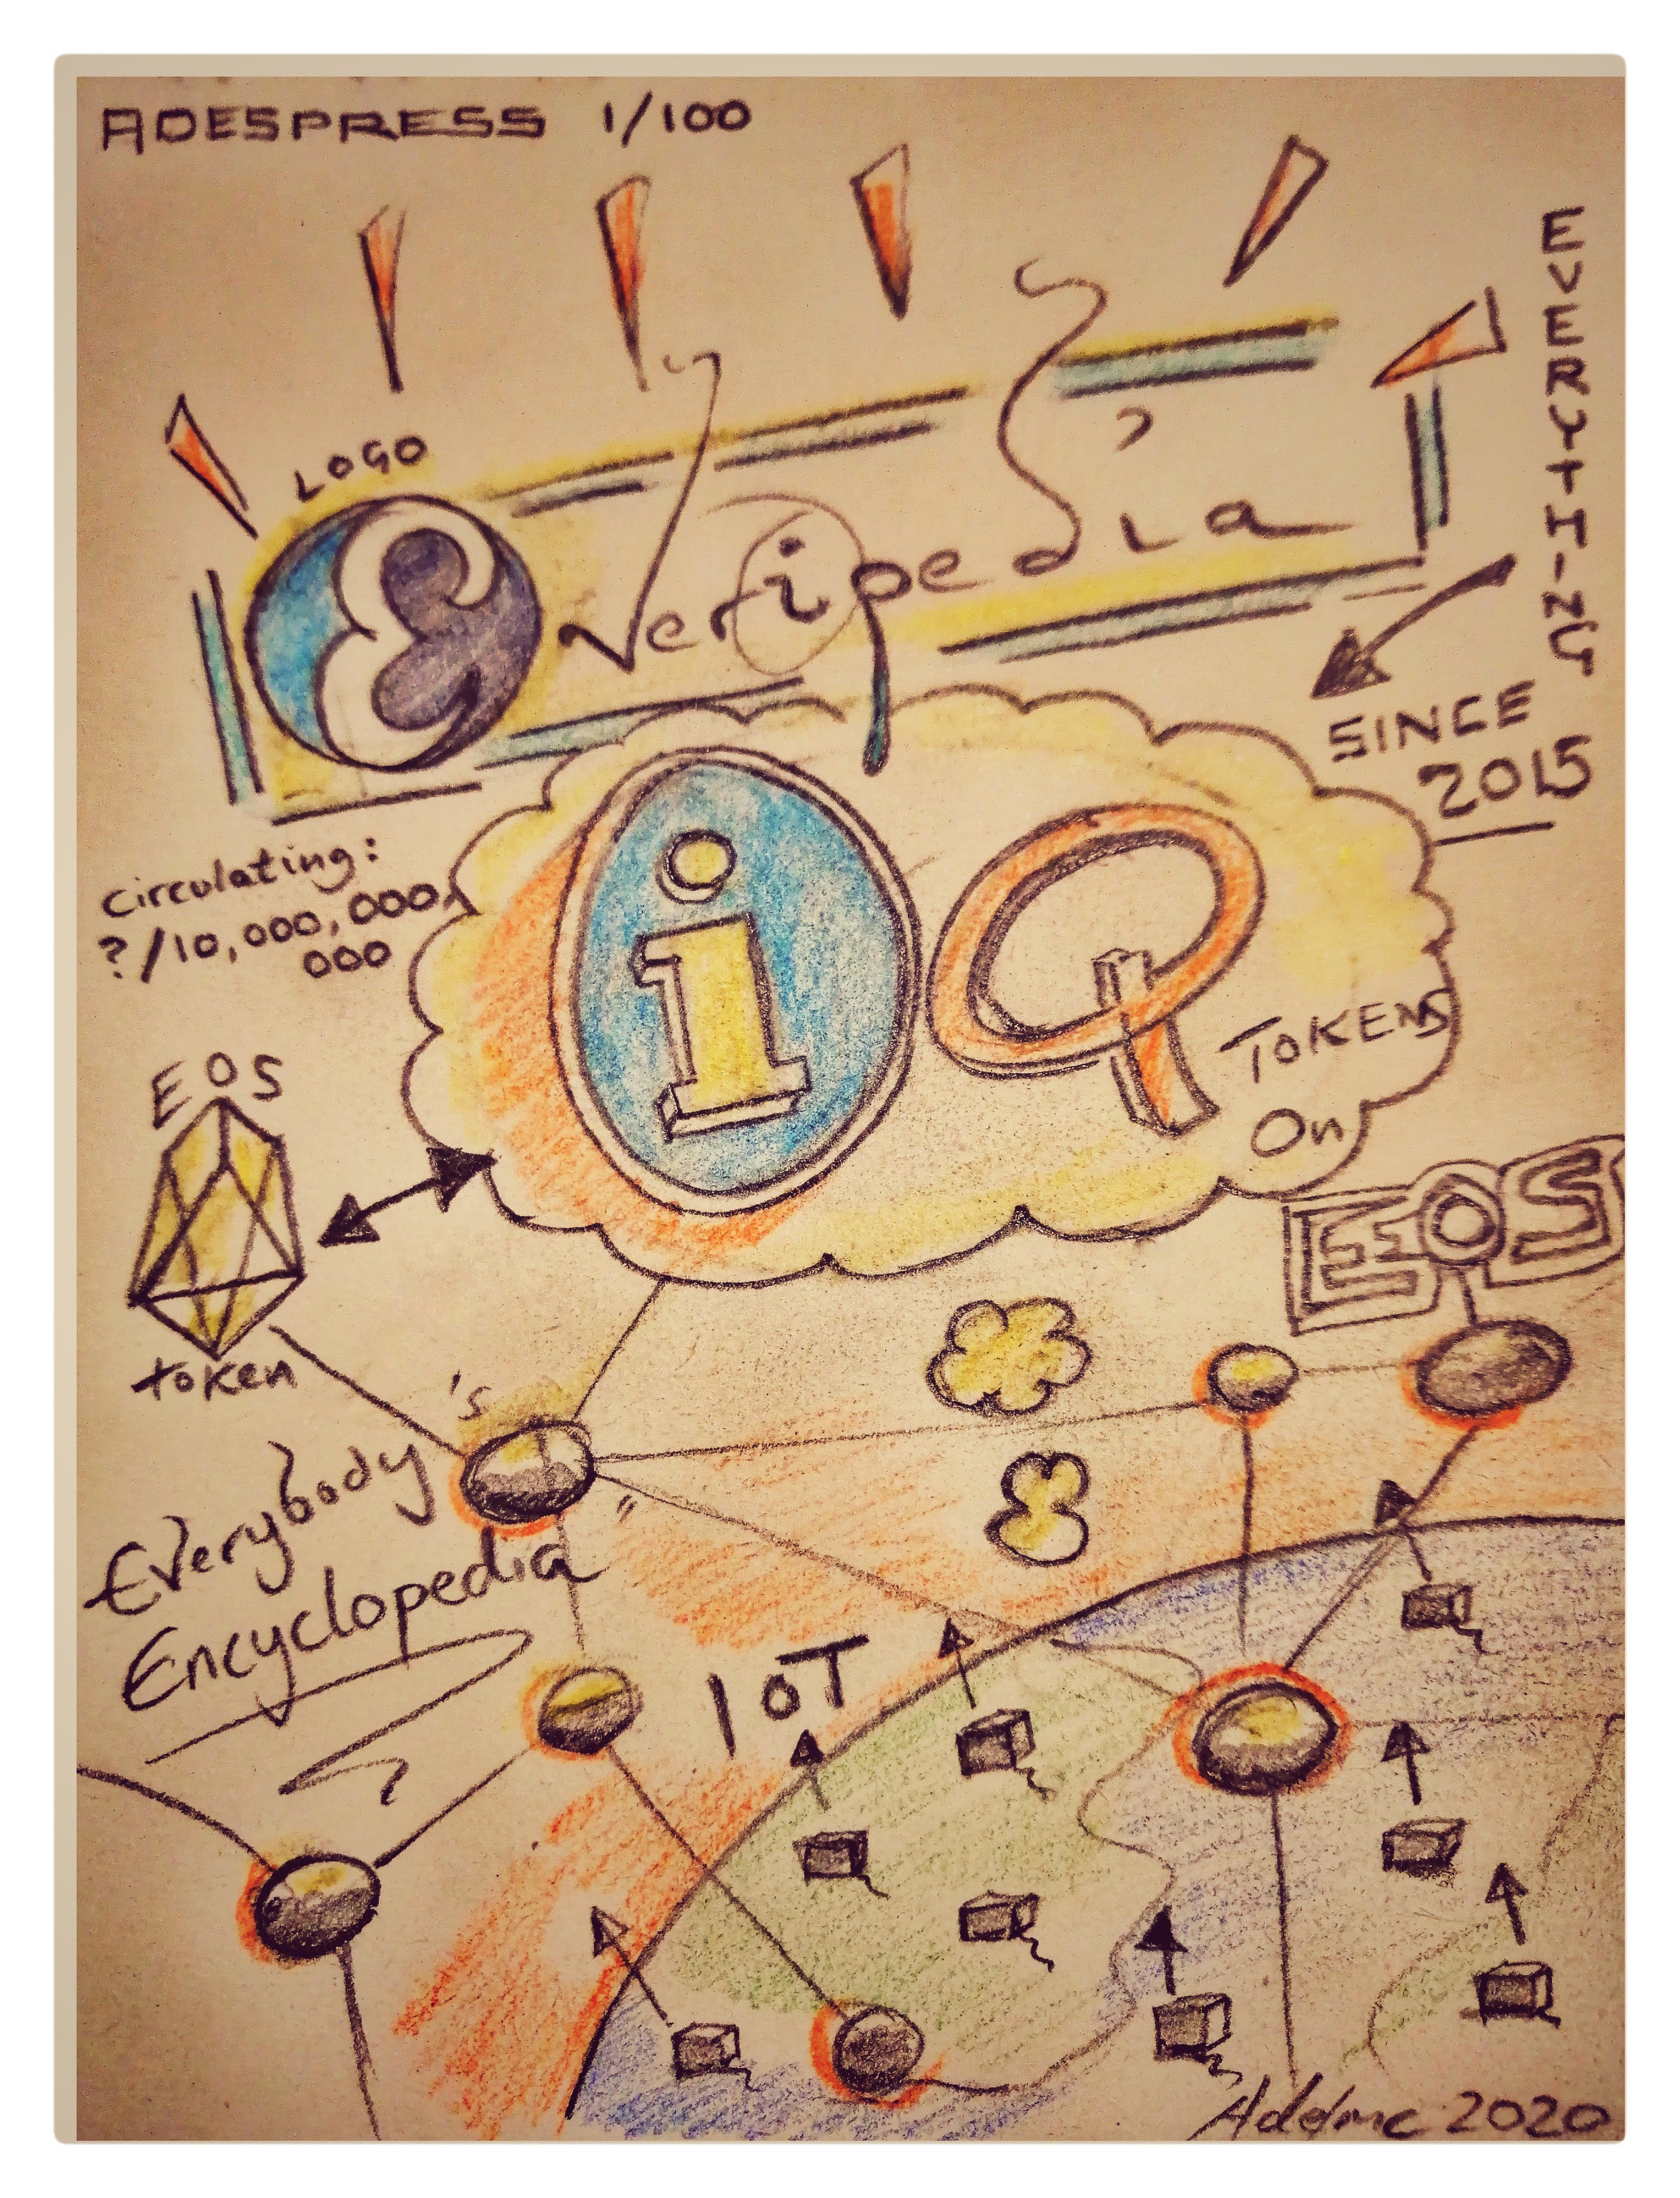 ADESPRESS 1/100
EVERYTHING
LOGO
Everipedia
SINCE
2015
circulating:
?/10,000,000,
000
iQ
TOKENS
On
EOS
EOS
token
Everybody's
Encyclopedia
IOT
Addmc 2020